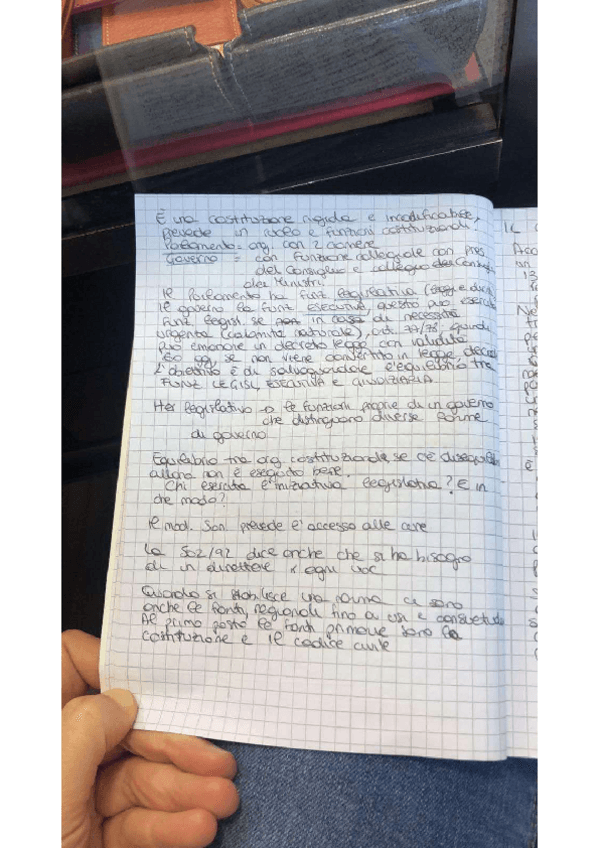 È una costituzione rigida e immodificabile,
prevede un ruolo e funzioni costituzionali
Parlamento = org. con 2 camere
Governo = con funzione collegiale con pres
del Consiglio e collegio dei Consigl
dei Ministri
Il Parlamento ha funz. legislativa (leggi e
Il governo ha funz ESECUTIVE questo può
funz. legisl. se in caso di necessità
urgente (calamità naturale), art. 77/78. Quindi
può emanare un decreto legge con validità
60 gg se non viene convertito in legge,
L'obiettivo è di salvaguardare l'equilibrio tra
FUNZ LEGISL, ESECUTIVA e GIUDIZIARIA
Iter legislativo → le funzioni proprie di un governo
che distinguono diverse forme
di governo.
Equilibrio tra org. costituzionale, se c'è disequilib
allora non è eseguito bene.
Chi esercita l'iniziativa legislativa? E in
che modo?
Il mod. San. prevede l'accesso alle cure
La 502/92 dice anche che si ha bisogno
di un direttore x ogni
Quando si stabilisce una norma ci sono
anche le fonti, regionali fino a usi e consuetud
Al primo posto le fonti primarie sono la
costituzione e il codice civile